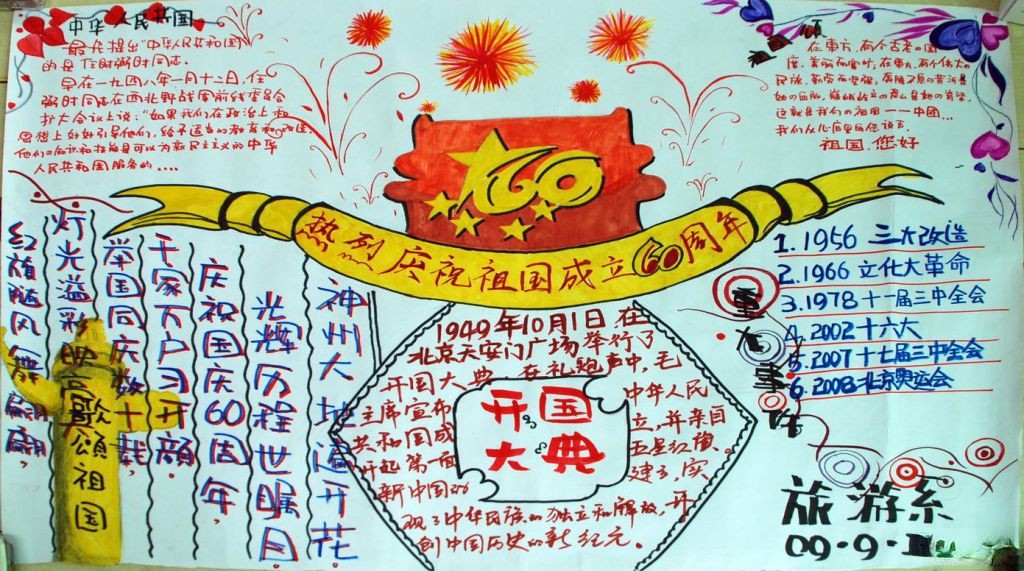 中华人民共国
最先提出"中华人民共和国"
的是任时弼时同志.
早在一九四八年一月十二日,任
弼时同志在西北野战军前线委员会
扩大会议上说:"如果我们在政治上和
思想上好好引导他们,给予适当的教育和改造,
他们的知识和技能是可以为新民主主义的中华
人民共和国服务的....
颂
在东方,有个古老的国
度,美丽而宽广,在东方,有个伟大的
民族,勤劳而坚强,奔腾不息的黄河是
她的血脉,巍峨屹立的泰山是她的脊梁,
这就是我们的祖国——中国...
我们从心底里向您说声,
祖国,您好
60
热烈庆祝祖国成立60周年
神州大地遍开花
光辉历程世瞩目
庆祝国庆60周年,
千家万户习开颜
举国同庆数十载
灯光溢彩映
歌颂祖国
红旗随风舞翩翩,
1949年10月1日,在
北京天安门广场举行了
开国大典,在礼炮声中,毛
主席宣布中华人民
共和国成立,并亲自
升起第一面五星红旗.
新中国的建立,实
现了中华民族的独立和解放,开
创中国历史的新纪元.
开国
大典
重大事件
1.1956 三大改造
2.1966 文化大革命
3.1978 十一届三中全会
4.2002 十六大
5.2007 十七届三中全会
6.2008 北京奥运会
旅游系
09·9·